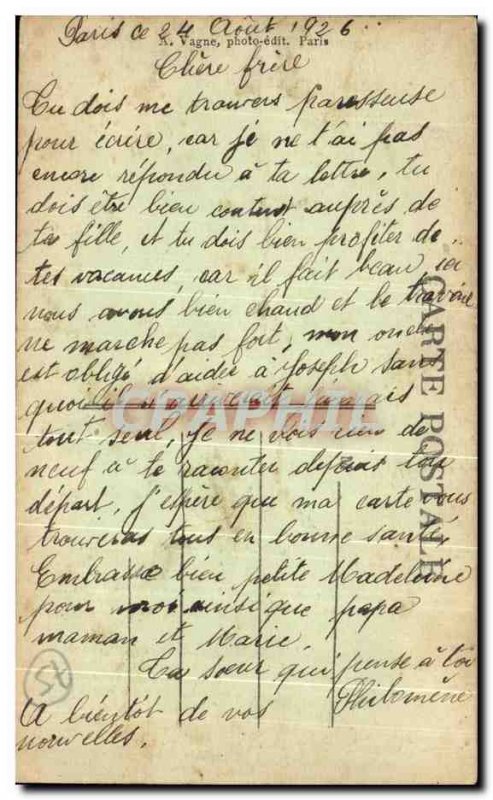 Paris ce 24 Août 1926
A. Vagne, photo-édit. Paris
Chère frère
Tu dois me trouvers paresseuse
pour écrire, car je ne t'ai pas
encore répondu à ta lettre, tu
dois être bien content auprès de
ta fille, et tu dois bien profiter de
tes vacances, car il fait beau ici
nous avons bien chaud et le travail
ne marche pas fort, mon oncle
est obligé d'aidée à Joseph sans
quoi il n'y jamais
tout seul, Je ne vois rien de
neuf à te raconter depuis ton
départ, J'espère que ma carte vous
trouveras tous en bonne santé,
Embrasse bien petite Madeleine
pour moi ainsi que papa
maman et Marie.
Ta sœur qui pense à toi
Philomène
A bientôt de vos
nouvelles.
CARTE POSTALE
CPAPHIL
75